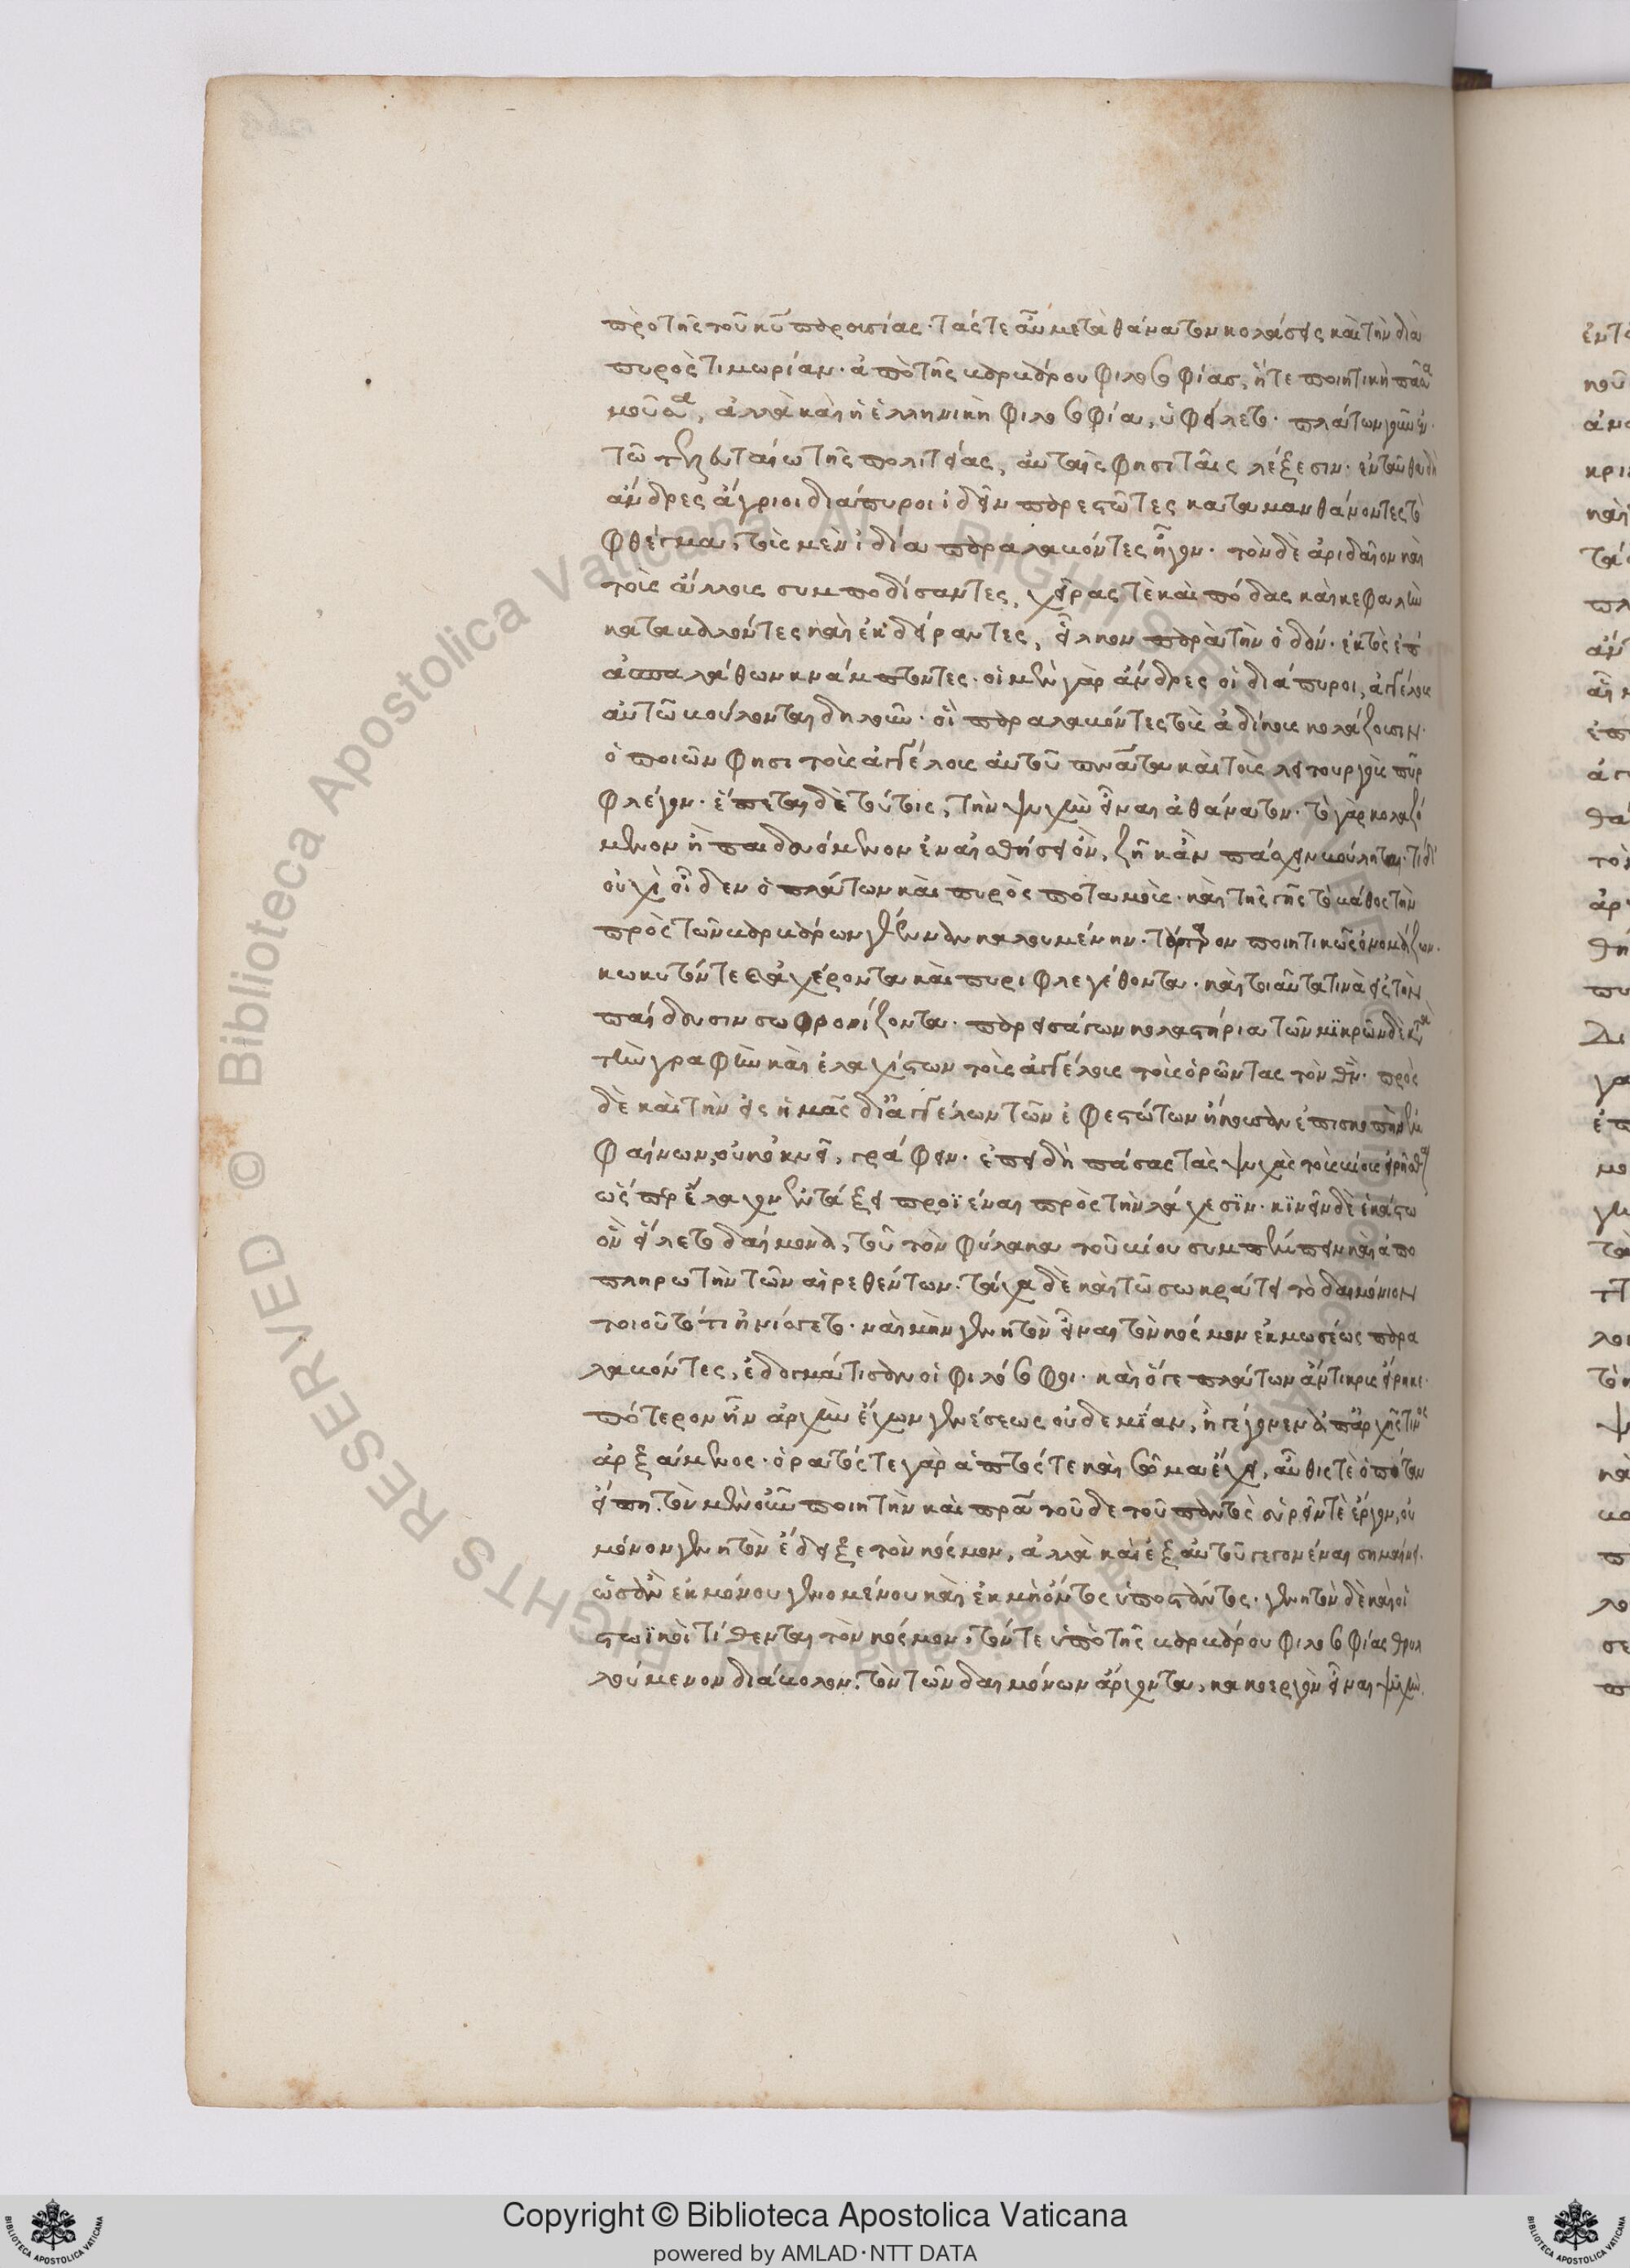 πρὸ τῆς τοῦ κυ παρουσίας. τάς τε αὖ μετὰ θάνατον κολάσεις καὶ τὴν διὰ
πυρὸς τιμωρίαν. ἀπὸ τῆς βαρβάρου φιλοσοφίας, ἥ τε ποιητικὴ πᾶσα
μοῦσα, ἀλλὰ καὶ ἡ ἑλληνικὴ φιλοσοφία, ὑφείλετο. πλάτων γοῦν ἐν
τῶ τελευταίω τῆς πολιτείας, αὐταῖς φησι ταῖς λέξεσιν. ἐνταῦθα δὴ
ἄνδρες ἄγριοι διάπυροι ἰδεῖν παρεστῶτες καταμανθάνοντες τὸ
φθέγμα, τοὺς μὲν ἰδία παραλαβόντες ἦγον. τὸν δὲ ἀριδαῖον καὶ
τοὺς ἄλλους συμποδίσαντες, χεῖρας τὲ καὶ πόδας καὶ κεφαλὴν
καταβαλόντες καὶ ἐκδείραντες, εἷλκον παρὰ τὴν ὁδόν. ἐκτὸς ἐπ
ἀσπαλάθων κνάμπτοντες. οἱ μὲν γὰρ ἄνδρες οἱ διάπυροι, ἀγγέλους
αὐτῶ βούλονται δηλοῦν. οἳ παραλαβόντες τοὺς ἀδίκους κολάζουσιν.
ὁ ποιῶν φησι τοὺς ἀγγέλους αὐτοῦ πνατα καὶ τοὺς λειτουργοὺς πῦρ
φλέγον. ἕπεται δὲ τούτοις, τὴν ψυχὴν εἶναι ἀθάνατον. τὸ γὰρ κολαζό
μενον ἢ παιδευόμενον ἐν αἰσθήσει ὂν, ζῆ κἂν πάσχειν βούληται. τί δ'
οὐχὶ οἶδεν ὁ πλάτων καὶ πυρὸς ποταμοὺς. καὶ τῆς γῆς τὸ βάθος τὴν
πρὸς τῶν βαρβάρων γέενναν καλουμένην. τάρταρον ποιητικῶς ὀνομάζων.
κωκυτόν τε καὶ ἀχέροντα καὶ πυριφλεγέθοντα. καὶ τοιαῦτα τινὰ εἰς τὸν
παίδευσιν σωφρονίζοντα. παρεισάγων κολαστήρια τῶν μϊκρῶν δὲ κατὰ
τὴν γραφὴν καὶ ἐλαχίστων τοὺς ἀγγέλους τοὺς ὁρῶντας τὸν θν. πρὸς
δὲ καὶ τὴν εἰς ἡμᾶς δι' ἀγγέλων τῶν ἐφεστώτων ἥκουσαν ἐπισκοπὴν ἐμ
φαίνων, οὐκ ὀκνεῖ, γράφειν. ἐπειδὴ πάσας τὰς ψυχὰς τοὺς βίους εἰρῆσθαι
ὥσπερ ἔλαχον ἐν τάξει προϊέναι πρὸς τὴν λάχεσϊν. κϊνεῖν δὲ ἑκάστω
ὃν εἵλετο δαίμονα, τοῦτον φύλακα τοῦ βίου συμπέμπειν καὶ ἀπο
πληρωτὴν τῶν αἱρεθέντων. τάχα δὲ καὶ τῶ σωκράτει τὸ δαιμόνιον
τοιοῦτό τι ἠνίσσετο. ναὶ μὴν γενητὸν εἶναι τὸν κόσμον ἐκ μωσέως παρα
λαβόντες, ἐδογμάτισαν οἱ φιλόσοφοι. καὶ ὅ γε πλάτων ἄντικρυς εἴρηκε.
πότερον ἦν ἀρχὴν ἔχων γενέσεως οὐδεμΐαν, ἢ γέγονεν ἀπ' ἀρχῆς τινὸς
ἀρξάμενος. ὁρατός τε γὰρ ἁπτός τε καὶ σῶμα ἔχει, αὖθίς τε ὁπόταν
εἴπη. τὸν μὲν οὖν ποιητὴν καὶ πρα τοῦδε τοῦ παντὸς εὑρεῖν τὲ ἔργον, οὐ
μόνον γενητὸν ἔδειξε τὸν κόσμον, ἀλλὰ καὶ ἐξ αὐτοῦ γεγονέναι σημαίνει.
ὡσὰν ἐκ μόνου γενομένου καὶ ἐκ μὴ ὄντος ὑποστάντος. γενητὸν δὲ καὶ οἱ
στωϊκοὶ τίθενται τὸν κόσμον, τόν τε ὑπὸ τῆς βαρβάρου φιλοσοφίας θρυλ
λούμενον διάβολον. τὸν τῶν δαιμόνων ἄρχοντα, κακοεργὸν εἶναι ψυχὴν